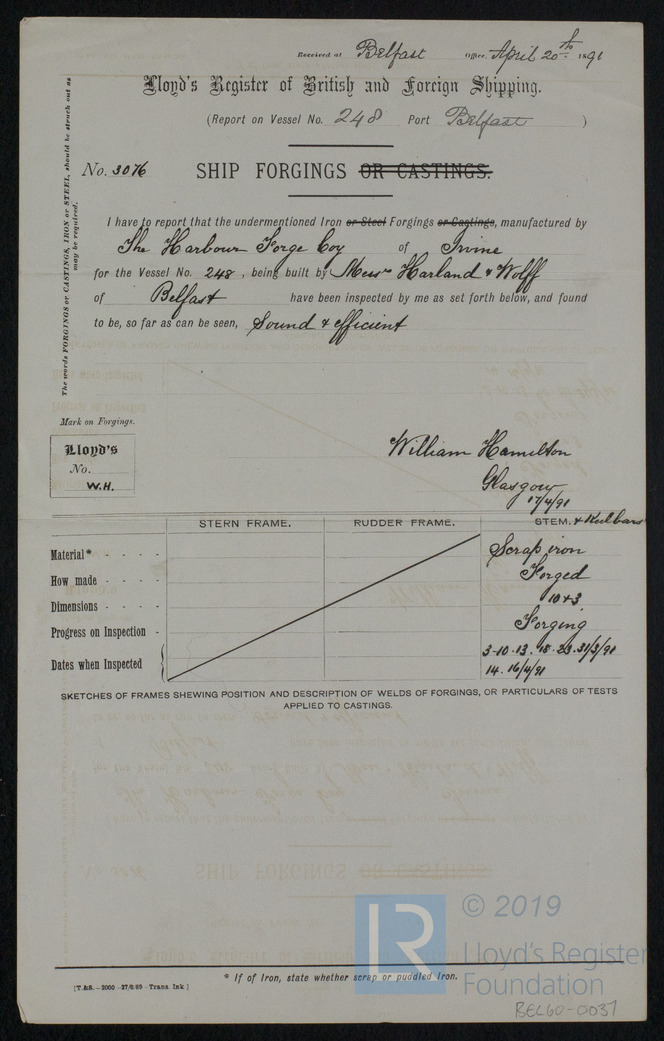 Received at Belfast Office, April 20th 1891
Lloyd's Register of British and Foreign Shipping.
(Report on Vessel No. 248 Port Belfast )
No. 3076 SHIP FORGINGS OR CASTINGS.
The words FORGINGS or CASTINGS, IRON or STEEL, should be struck out as
may be required.
I have to report that the undermentioned Iron or Steel Forgings or Castings, manufactured by
The Harbour Forge Coy of Irvine
for the Vessel No. 248, being built by Messrs Harland & Wolff
of Belfast have been inspected by me as set forth below, and found
to be, so far as can be seen, Sound & efficient
Mark on Forgings.
Lloyd's
No.
W.H.
William Hamilton
Glasgow
17/4/91
STERN FRAME. RUDDER FRAME. STEM. & Keel bars
Material* - - - - Scrap iron
How made - - - - Forged
Dimensions - - - - 10 x 3
Progress on Inspection - Forging
Dates when Inspected 3·10·13·18·23·31/3/91
14·16/4/91
SKETCHES OF FRAMES SHEWING POSITION AND DESCRIPTION OF WELDS OF FORGINGS, OR PARTICULARS OF TESTS
APPLIED TO CASTINGS.
* If of Iron, state whether scrap or puddled Iron.
[T.&S.-2000-27/6/89-Trans. Ink.]
LR
© 2019
Lloyd's Register
Foundation
BEL60-0037